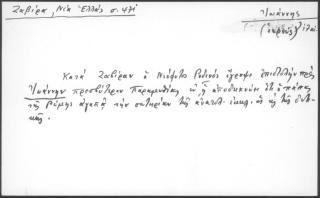 Ζαβίρα, Νέα Ἑλλάς σ. 461
Ἰωάννης
(ἱερεύς)
Κατὰ Ζαβίραν ὁ Νεόφυτος Ῥοδινὸς ἔγραψε ἐπιστολὴν πρὸς
Ἰωάννην πρεσβύτερον Παραμυθίας ἐν ᾗ ἀποδεικνύει ὅτι ὁ πάπας
τῆς Ῥώμης ἀγαπᾷ τὴν σωτηρίαν τῆς ἀνατολ. ἐκκλ. ὡς κ τῆς δυτι-
κῆς.